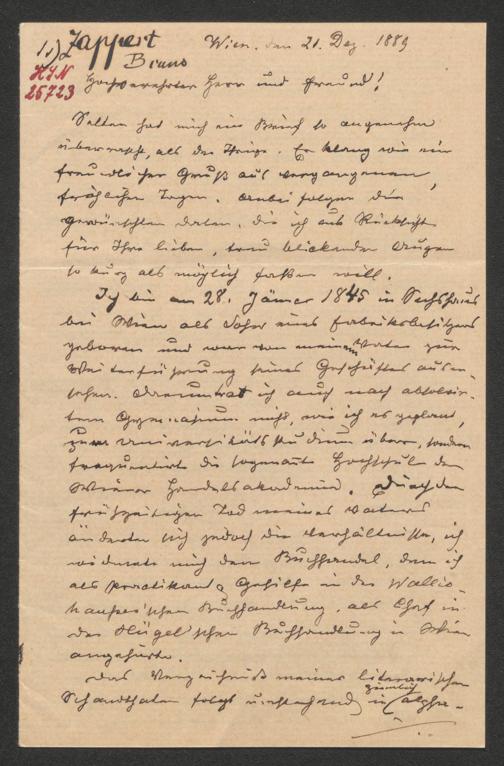 1.) Zappert
Bruno
HIN
25723
Wien, den 21. Dez. 1889
Hochverehrter Herr und Freund!
Selten hat mich ein Brief so angenehm
überrascht, als der Ihrige. Er klang wie ein
freundlicher Gruß aus vergangenen,
fröhlichen Tagen. Anbei folgen die
gewünschten Daten, die ich aus Rücksicht
für Ihre lieben, treu blickenden Augen
so kurz als möglich fassen will.
Ich bin am 28. Jänner 1845 in Sechshaus
bei Wien als Sohn eines Fabriksbesitzers
geboren und war von meinem Vater zur
Weiterführung seines Geschäftes auser-
sehen. Darum trat ich auch nach absolvir-
tem Gymnasium nicht, wie ich es geplant,
zum Universitätsstudium über, sondern
frequentirte die sogenannte Hochschule der
Wiener Handelsakademie. Durch den
frühzeitigen Tod meines Vaters
änderten sich jedoch die Verhältnisse, ich
widmete mich dem Buchhandel, dem ich
als Praktikant, Gehilfe in der Wallis-
hausser'schen Buchhandlung, als Chef in
der Hügel'schen Buchhandlung in Wien
angehörte.
Das Verzeichniß meiner literarischen
Schandthaten folgt umstehend in (ziemlich) alpha-